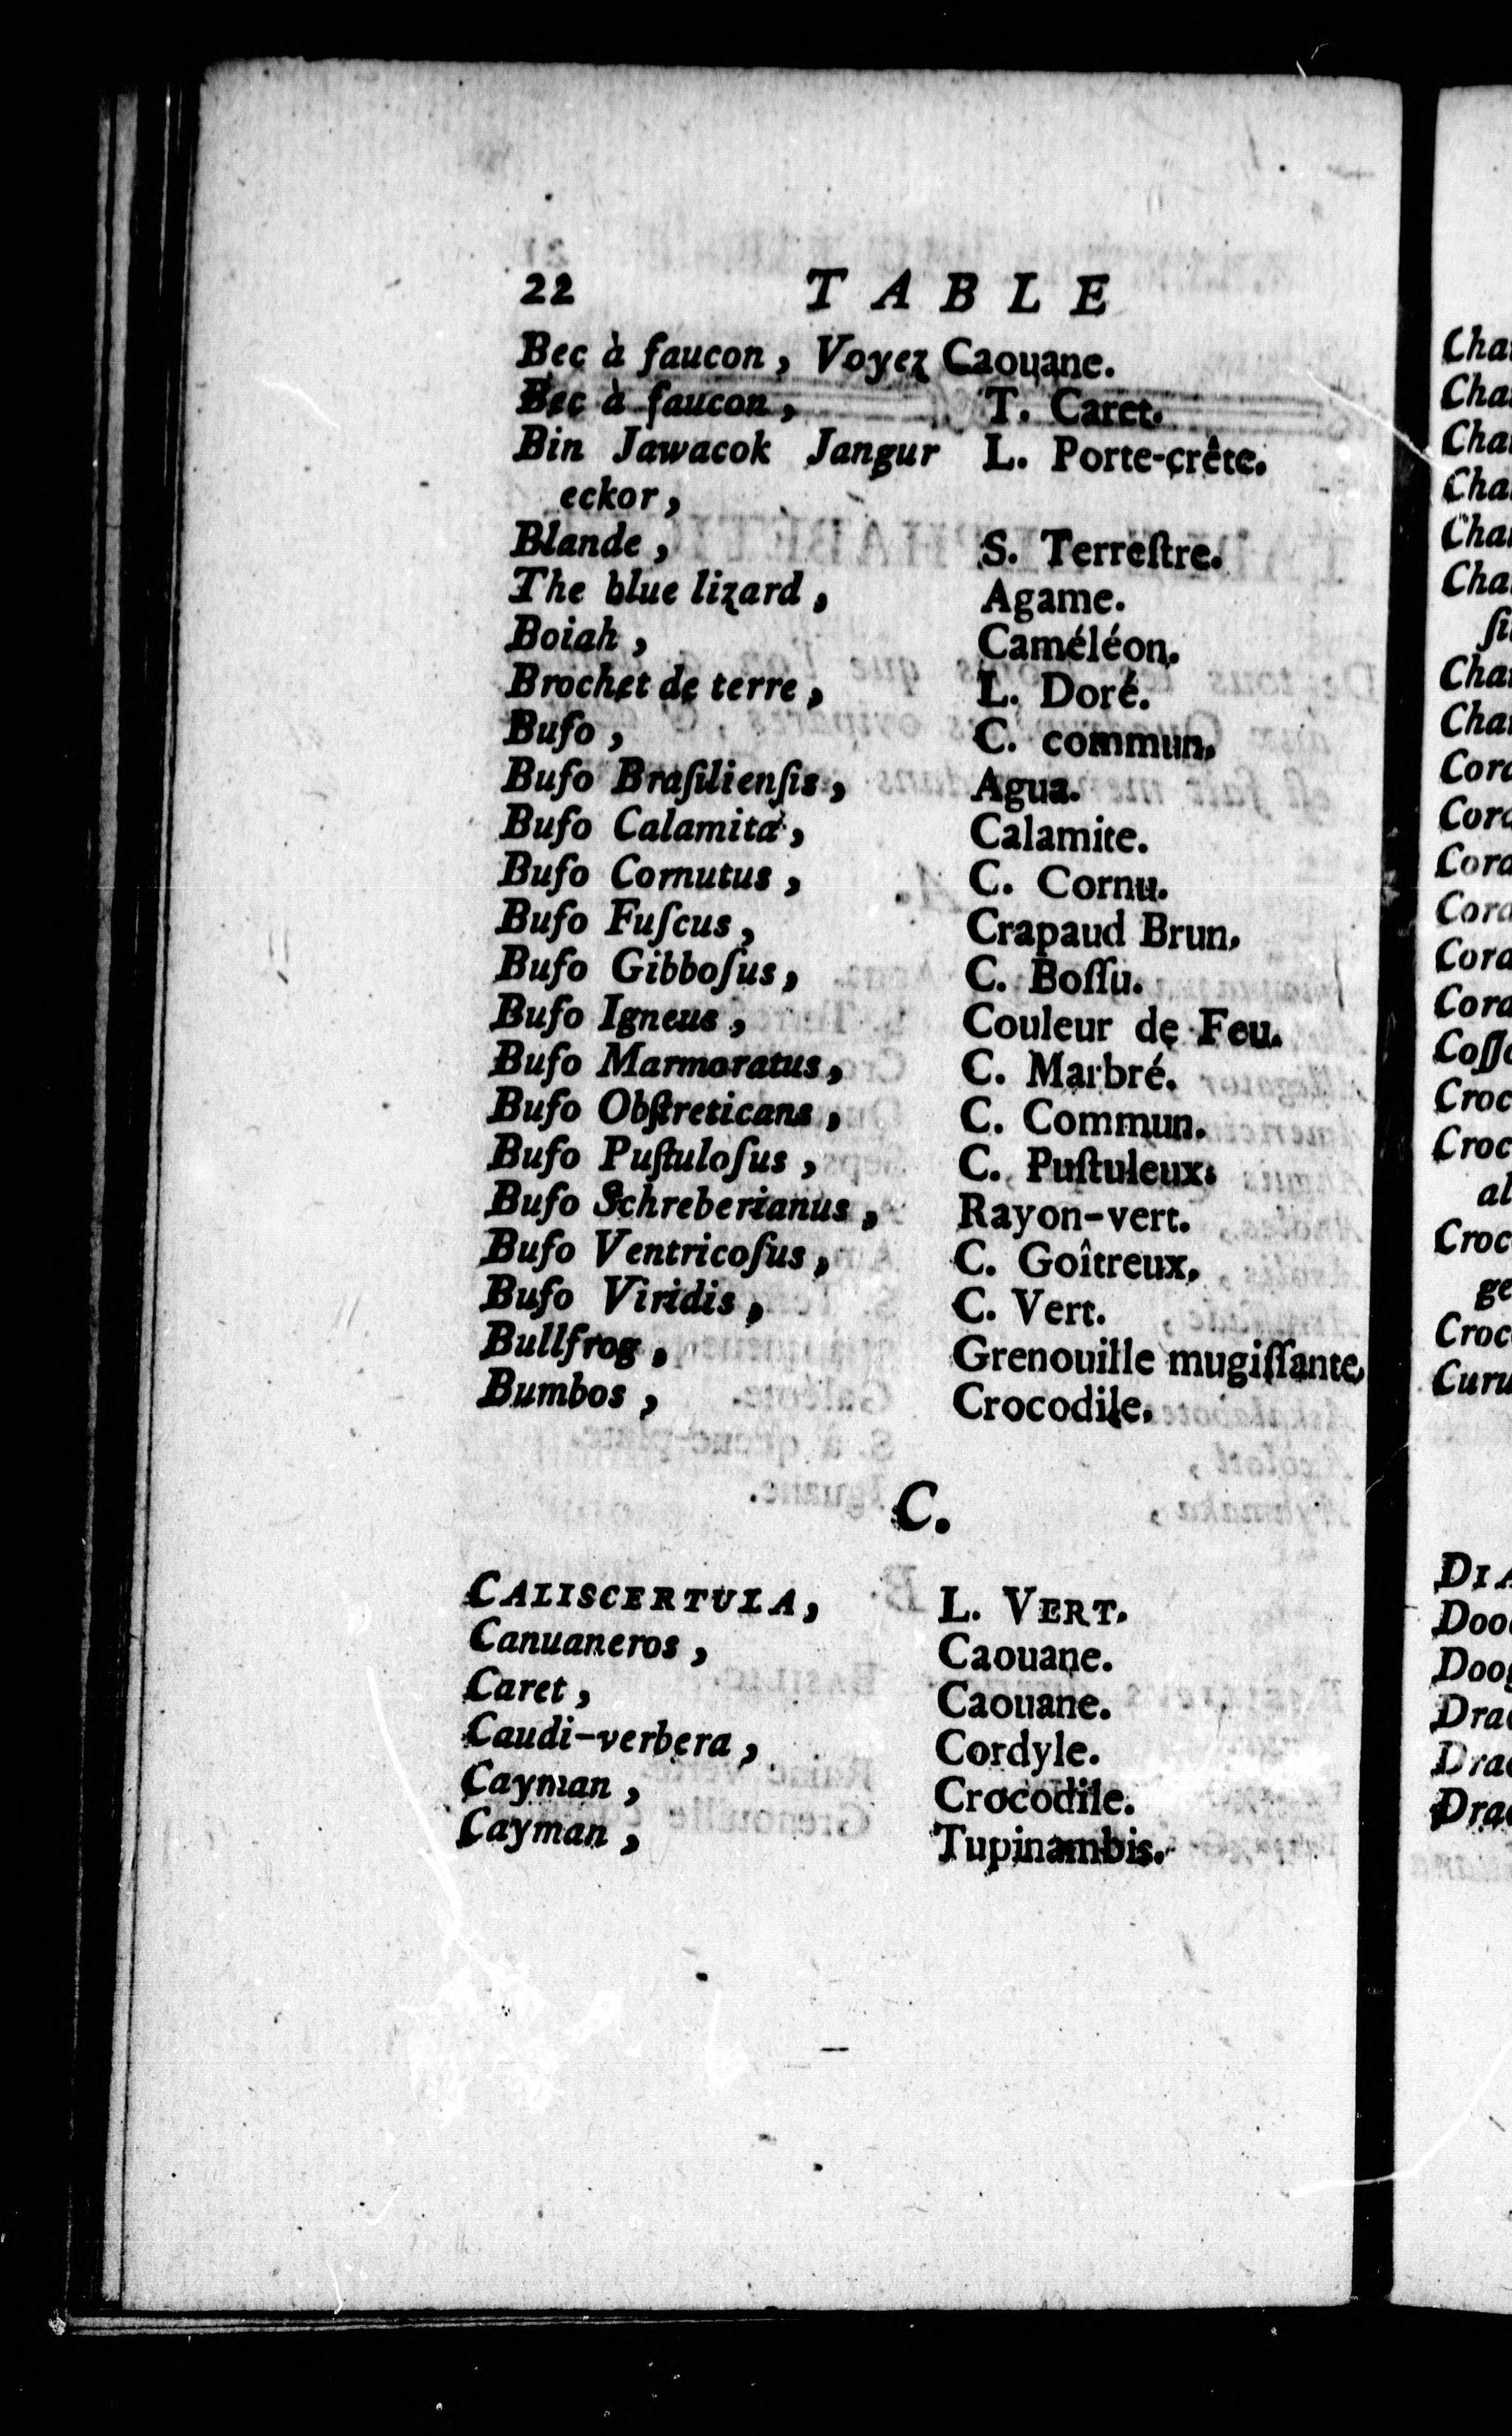 22 TABLE
Bec à faucon, Voyez Caouane.
Bec à faucon, T. Caret.
Bin Jawacok Jangur L. Porte-crête.
eckor,
Blande, S. Terreſtre.
The blue lizard, Agame.
Boiah, Caméléon.
Brochet de terre, L. Doré.
Bufo, C. commun.
Bufo Braſilienſis, Agua.
Bufo Calamita, Calamite.
Bufo Cornutus, C. Cornu.
Bufo Fuſcus, Crapaud Brun.
Bufo Gibboſus, C. Boſſu.
Bufo Igneus, Couleur de Feu.
Bufo Marmoratus, C. Marbré.
Bufo Obſtreticans, C. Commun.
Bufo Puſtuloſus, C. Puſtuleux.
Bufo Schreberianus, Rayon-vert.
Bufo Ventricoſus, C. Goîtreux.
Bufo Viridis, C. Vert.
Bullfrog, Grenouille mugiſſante.
Bumbos, Crocodile.
C.
CALISCERTULA, L. VERT.
Canuaneros, Caouane.
Caret, Caouane.
Caudi-verbera, Cordyle.
Cayman, Crocodile.
Cayman, Tupinambis.